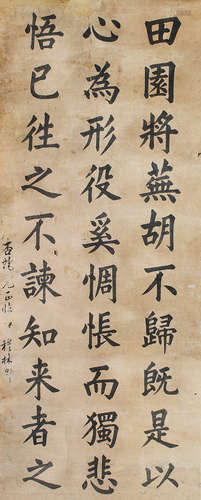 田園將蕪胡不歸既是以
心為形役奚惆悵而獨悲
悟已徃之不諫知来者之